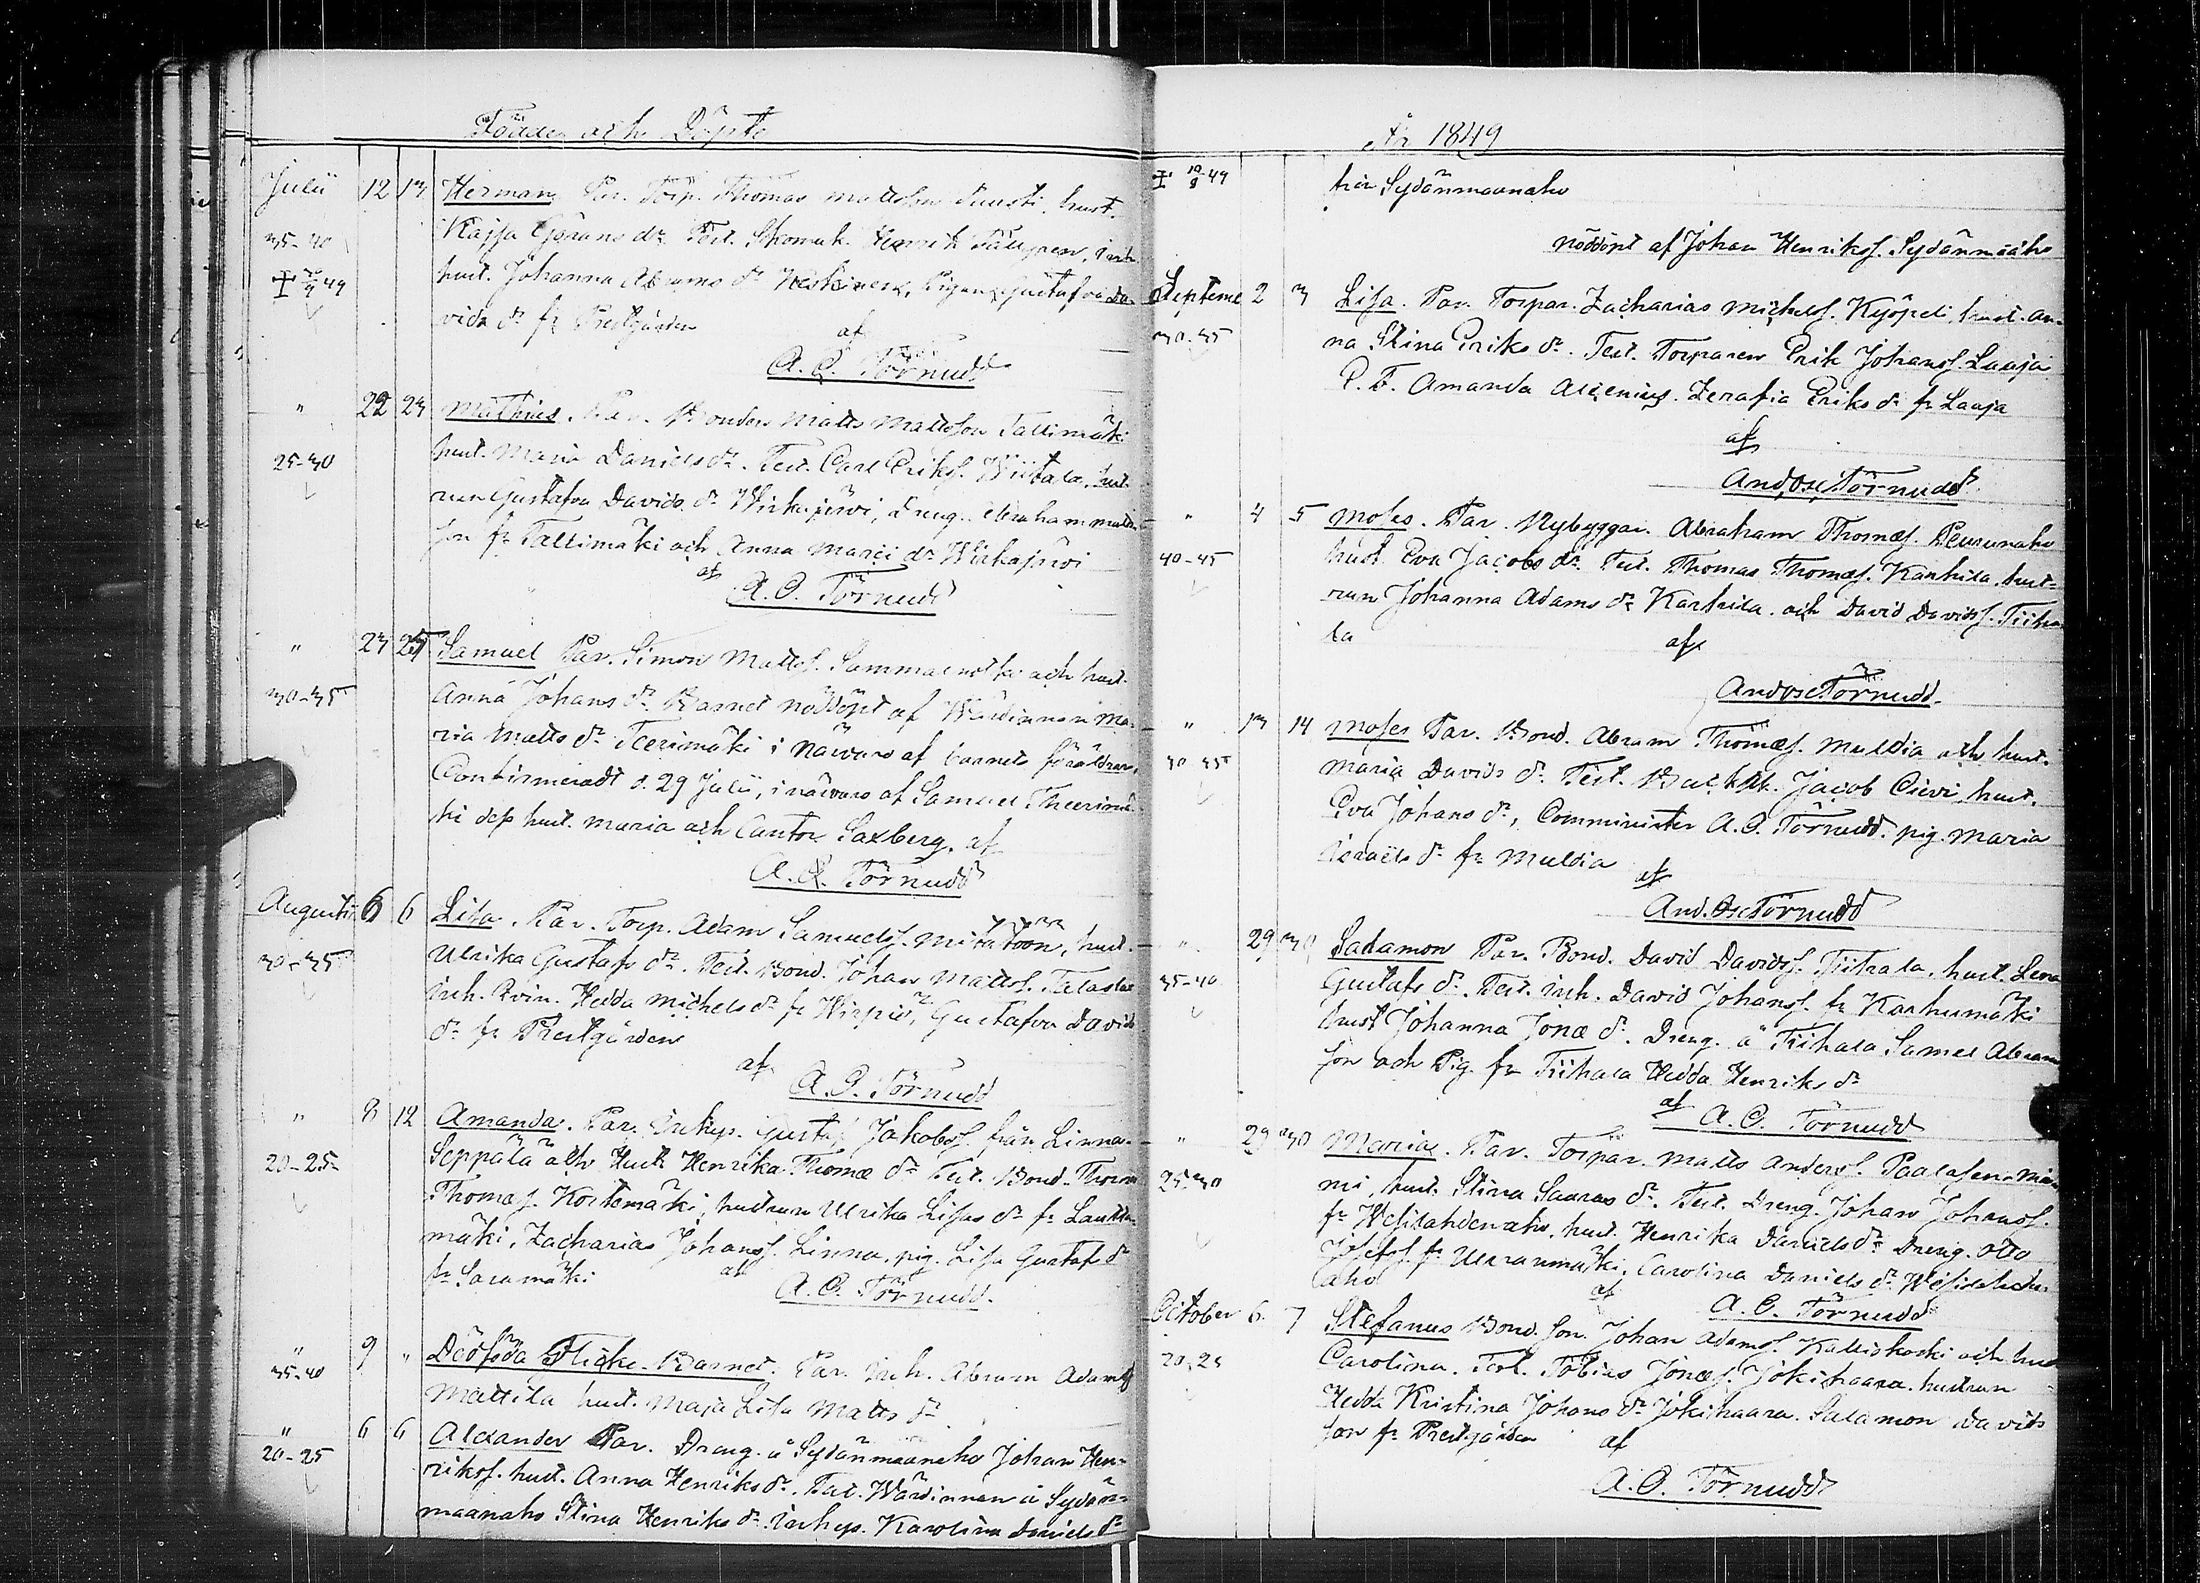 Födde och Döpte
Julii 12 13 Herman Par. Torp. Thomas Mattsson hust.
35-40 Kajsa Görans dr Test. Skomak. Henrik
hust. Johanna Abrams dr Pigan Gustafva Da-
vids dr fr Prestgården
af
A. O. Törnudd
" 22 23 Mathias. Par. Bonden Matts Mattsson Tallimäki
25-30 hust. Maria Daniels dr. Test. Carl Eriks. Wiitala, hust-
run Gustafva Davids dr Wirkajärvi, Dreng. Abraham Matts-
son fr Tallimäki och Anna Marii dr Wirkajärvi
af
A. O. Törnudd
" 23 25 Samuel Par. Simon Mattss. och hust.
30-35 Anna Johans dr Barnet nöddöpt af Wärdinnan Ma-
ria Matts dr Teerimäki i närvaro af barnets föräldrar,
Confirmeradt d. 29 Julii, i närvaro af Samuel Theerimä-
ki dess hust. Maria och Cantor Saxberg. af
A. O. Törnudd
Augusti 6 6 Lisa. Par. Torp. Adam Samuelss. hust.
30-35 Ulrika Gustafs dr. Test. Bond. Johan Mattss.
Inh. Qvin. Hedda Michels dr fr Gustafva Davids
dr fr Prestgården
af
A. O. Törnudd
" 8 12 Amanda. Par. Inhys. Gustaf Jakobss. från Linna-
20-25 Seppälä och Hust. Henrika Thomæ dr Test. Bond. Thomas
Thomass. Kortemäki, hustrun Ulrika Lisas dr fr
mäki, Zacharias Johanss. Linna, pig. Lisa Gustafs dr
fr Saramäki
af
A. O. Törnudd.
" 9 " Dödföda Flicke-Barnet. Par. Inh. Abram Adamss
35-40 Mattila hust. Maja Lisa Matts dr.
" 6 6 Alexander Par. Dreng. å Sydänmaanaho Johan Hen-
20-25 rikss. hust. Anna Henriks dr. Test. Wärdinnan å Sydän-
maanaho Stina Henriks dr Inhys. Karolina Daniels dr
År 1849
från Sydänmaanaho
nöddöpt af Johan Henrikss. Sydänmaaho
Septemb 2 3 Lisa. Par. Torpar. Zacharias Michelss. Kyöpeli, hust. An-
30-35 na Stina Eriks dr. Test. Torparen Erik Johanss. Laaja
E. F. Amanda Alcenius. Zerafia Eriks dr fr Laaja
af
And Osc Törnudd
" 4 5 Moses. Par. Nybyggar. Abraham Thomæs. Peuranaho
40-45 hust. Eva Jacobs dr. Test. Thomas Thomæs. Karhila, hust-
run Johanna Adams dr Karhila. och David Davidss. Tiiha-
la
af
And Osc Törnudd.
" 13 14 Moses Par. Bond. Abram Thomæs. Muldia och hust.
30-35 Maria Davids dr Test. Jacob Cievi, hust.
Eva Johans dr, Comminister A. O. Törnudd. pig. Maria
Israels dr fr Muldia
af
And. Osc Törnudd
" 29 30 Salamon Par. Bond. David Davidss. Tiihala, hust. Lena
35-40 Gustafs dr. Test. Inh. David Johanss. fr Karhumäki
hust Johanna Jonæ dr. Dreng. å Tiihala Samel Abram
son och Pig. fr Tiihala Hedda Henriks dr
af
A. O. Törnudd
" 29 30 Maria. Par. Torpar. Matts Anderss.
25-30 mi, hust. Stina Saaras dr. Test. Dreng. Johan Johanss.
fr hust. Henrika Daniels dr Dreng. Otto
Josefss. fr Carolina Daniels dr
aho
af
A. O. Törnudd
October 6 7 Stefanus Bond. Son. Johan Adamss. Kalliokoski och hust
20-25 Carolina. Test. Tobias Jonæs. Jokihaara. hustrun
Hedda Kristina Johans dr Jokihaara. Salamon Davids
son fr Prestgården
af
A. O. Törnudd